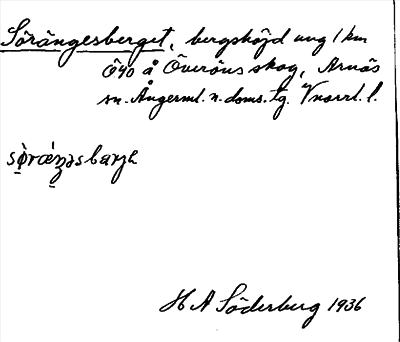 Sörängesberget, bergshöjd ung 1 km
ÖSO å Överöns skog, Arnäs
sn. Ångerml. n. doms. tg. Vnorrl. l.
H A Söderberg 1936